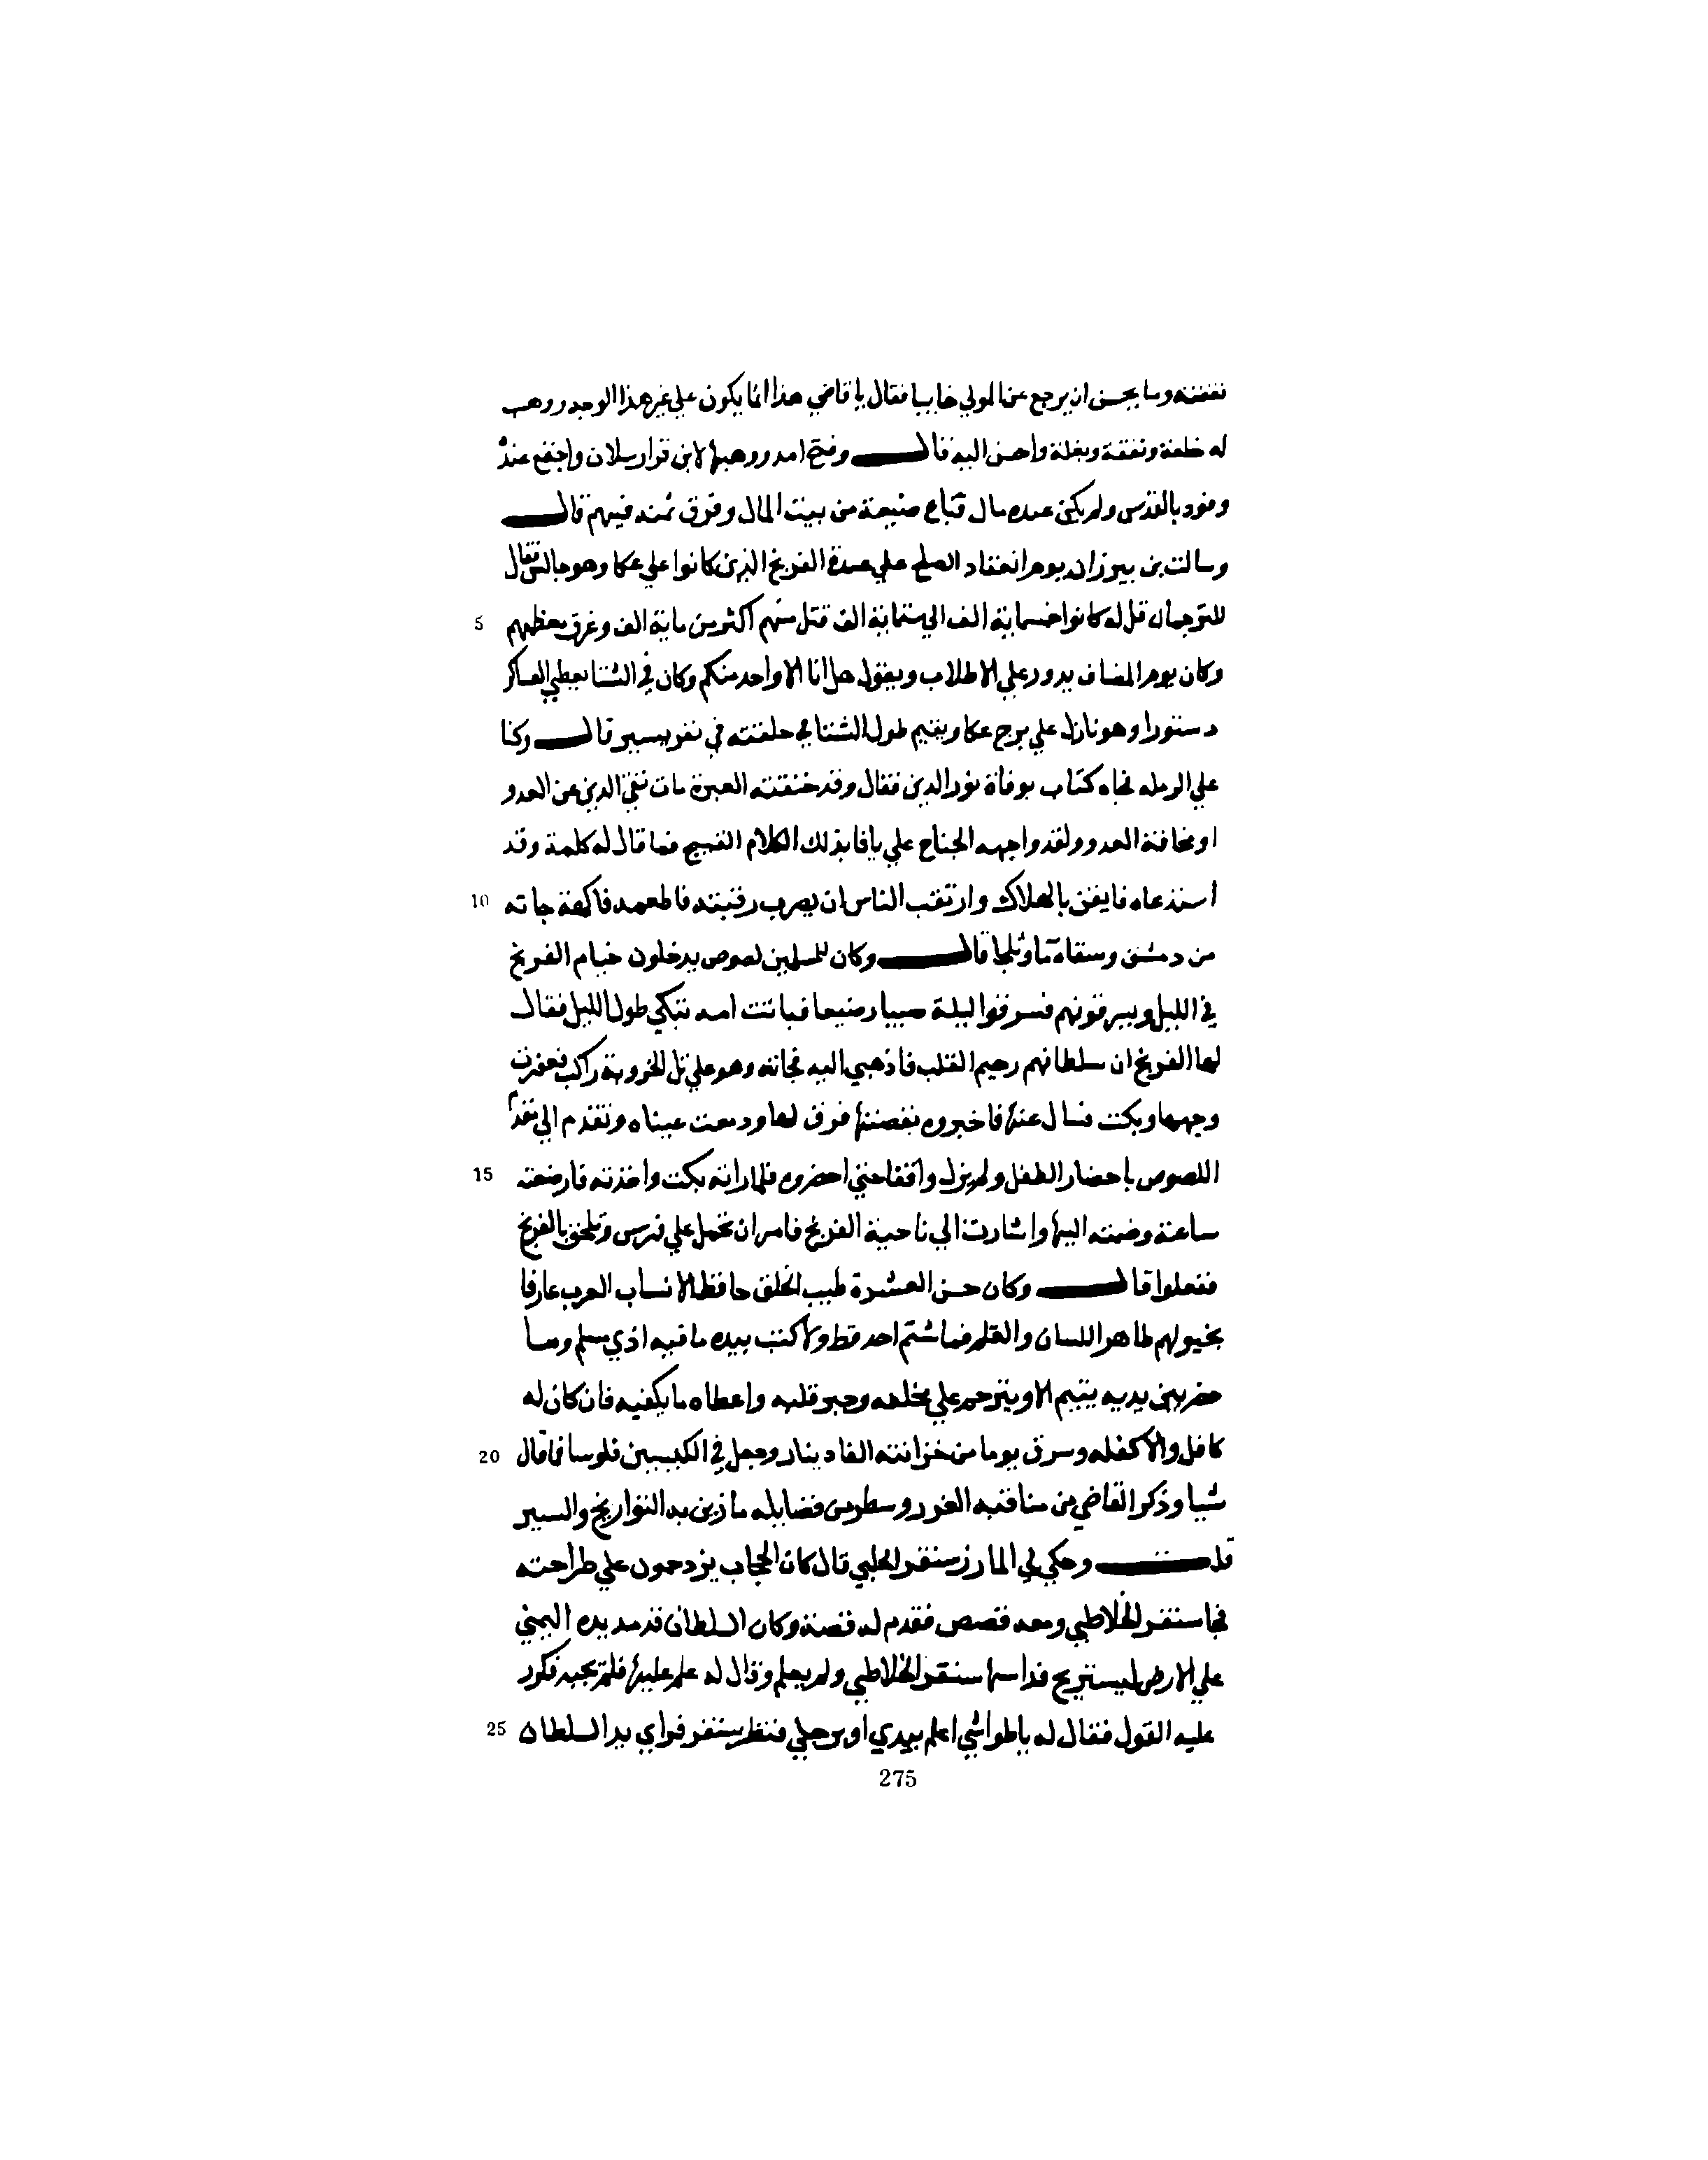 نفقته وما يحسن ان يرجع عن المولي خايبا فقال يا قاضي هذا انما يكون علي غير هذا الوجه ووهب
له خلعة ونفقة وبغلة واحسن اليه قال وفتح امد ووهبها لابن قرا رسلان واجتمع عنده
وفود بالقدس ولم يكن عنده مال فباع ضيعة من بيت المال وفرق ثمنه فيهم قال
وسالت بن بيرزان يوم انعقاد الصلح علي عدة الفرنج الذين كانوا علي عكا وهو جالس فقال
للترجمان قل له كانوا خمسماية الف الي ستماية الف قتل منهم اكثر من ماية الف وغرق معظمهم 5
وكان يوم المصاف يدور علي الاطلاب ويقول هل انا الا واحد منكم وكان في الشتا يعطي العساكر
دستورا وهو نازل علي برج عكا ويقيم طول الشتا في حلقته في نفر يسير قال وكنا
علي الرمله فجاه كتاب بوفاة تقي الدين فقال وقد خنقته العبرة مات تقي الدين عن العدو
او مخافة العدو ولقد واجهه الجناح علي يافا بذلك الكلام القبيح فما قال له كلمة وقد
استدعاه فايقن بالهلاك وارتقب الناس ان يضرب رقبته فاطعمه فاكهة جاته 10
من دمشق وسقاه مآ وثلجا قال وكان للمسلمين لصوص يدخلون خيام الفرنج
في الليل ويسرقونهم فسرقوا ليلة صبيا رضيعا فباتت امه تبكي طول الليل فقال
لها الفرنج ان سلطانهم رحيم القلب فاذهبي اليه فجاته وهو علي تل الخروبة راكب فعفرت
وجهها وبكت فسال عنها فاخبروه بقصتها فرق لها ودمعت عيناه وتقدم الي مقدم
اللصوص باحضار الطفل ولم يزل واقفا حتي احضروه فلما راته بكت واخذته فارضعته 15
ساعة وضمته اليها واشارت الي ناحية الفرنج فامر ان تحمل علي فرس وتلحق بالفرنج
ففعلوا قال وكان حسن العشرة طيب الخلق حافظا لانساب العرب عارفا
بخيولهم طاهر اللسان والقلم فما شتم احد قط ولا كتب بيده ما فيه اذي مسلم وما
حضر بين يديه يتيم الا ويترحم علي مخلفه وجبر قلبه واعطاه ما يكفيه فان كان له
كافل والا كفله وسرق يوما من خزانته الفا دينار وجعل في الكيسين فلوسا فما قال 20
شيا وذكر القاضي من مناقبه الغرر وسطر من فضايله ما زين به التواريخ والسير
قلت وحكي لي المبارز سنقر الحلبي قال كان الحجاب يزدحمون علي طراحته
فجا سنقر الخلاطي ومعه قصص فقدم له قصة وكان السلطان قد مد يده اليمني
علي الارض ليستريح فداسها سنقر الخلاطي ولم يعلم وقال له علم عليها فلم يجبه فكرر
عليه القول فقال له يا طواشي اعلم بيدي او برجلي فنظر سنقر فراي يد السلطان 25
275